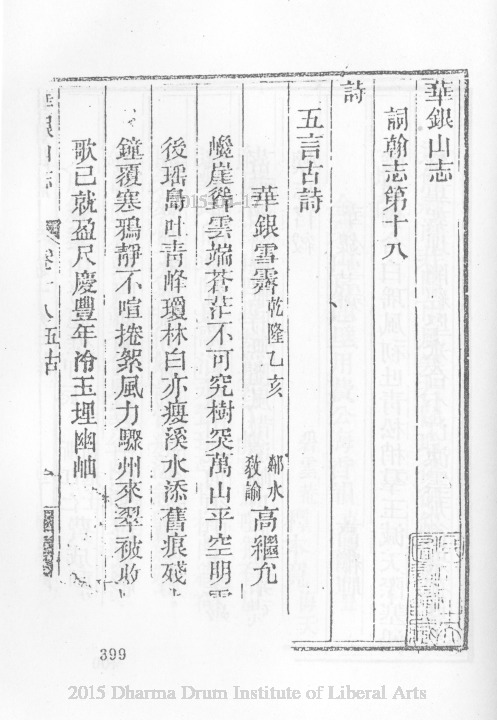 華銀山志
詞翰志第十八
詩
五言古詩
華銀雪霽 乾隆乙亥 鄰水教諭 高繼允
巉崖聳雲端蒼茫不可究樹突萬山平空明
後瑶島吐青峰瓊林白亦瘦溪水添舊痕殘
鐘覆寒鴉靜不喧捲絮風力驟州來翠被收
歌已就盈尺慶豐年冷玉埋幽岫
華銀山志 卷十八五古 一
399
2015-04-17
2015 Dharma Drum Institute of Liberal Arts